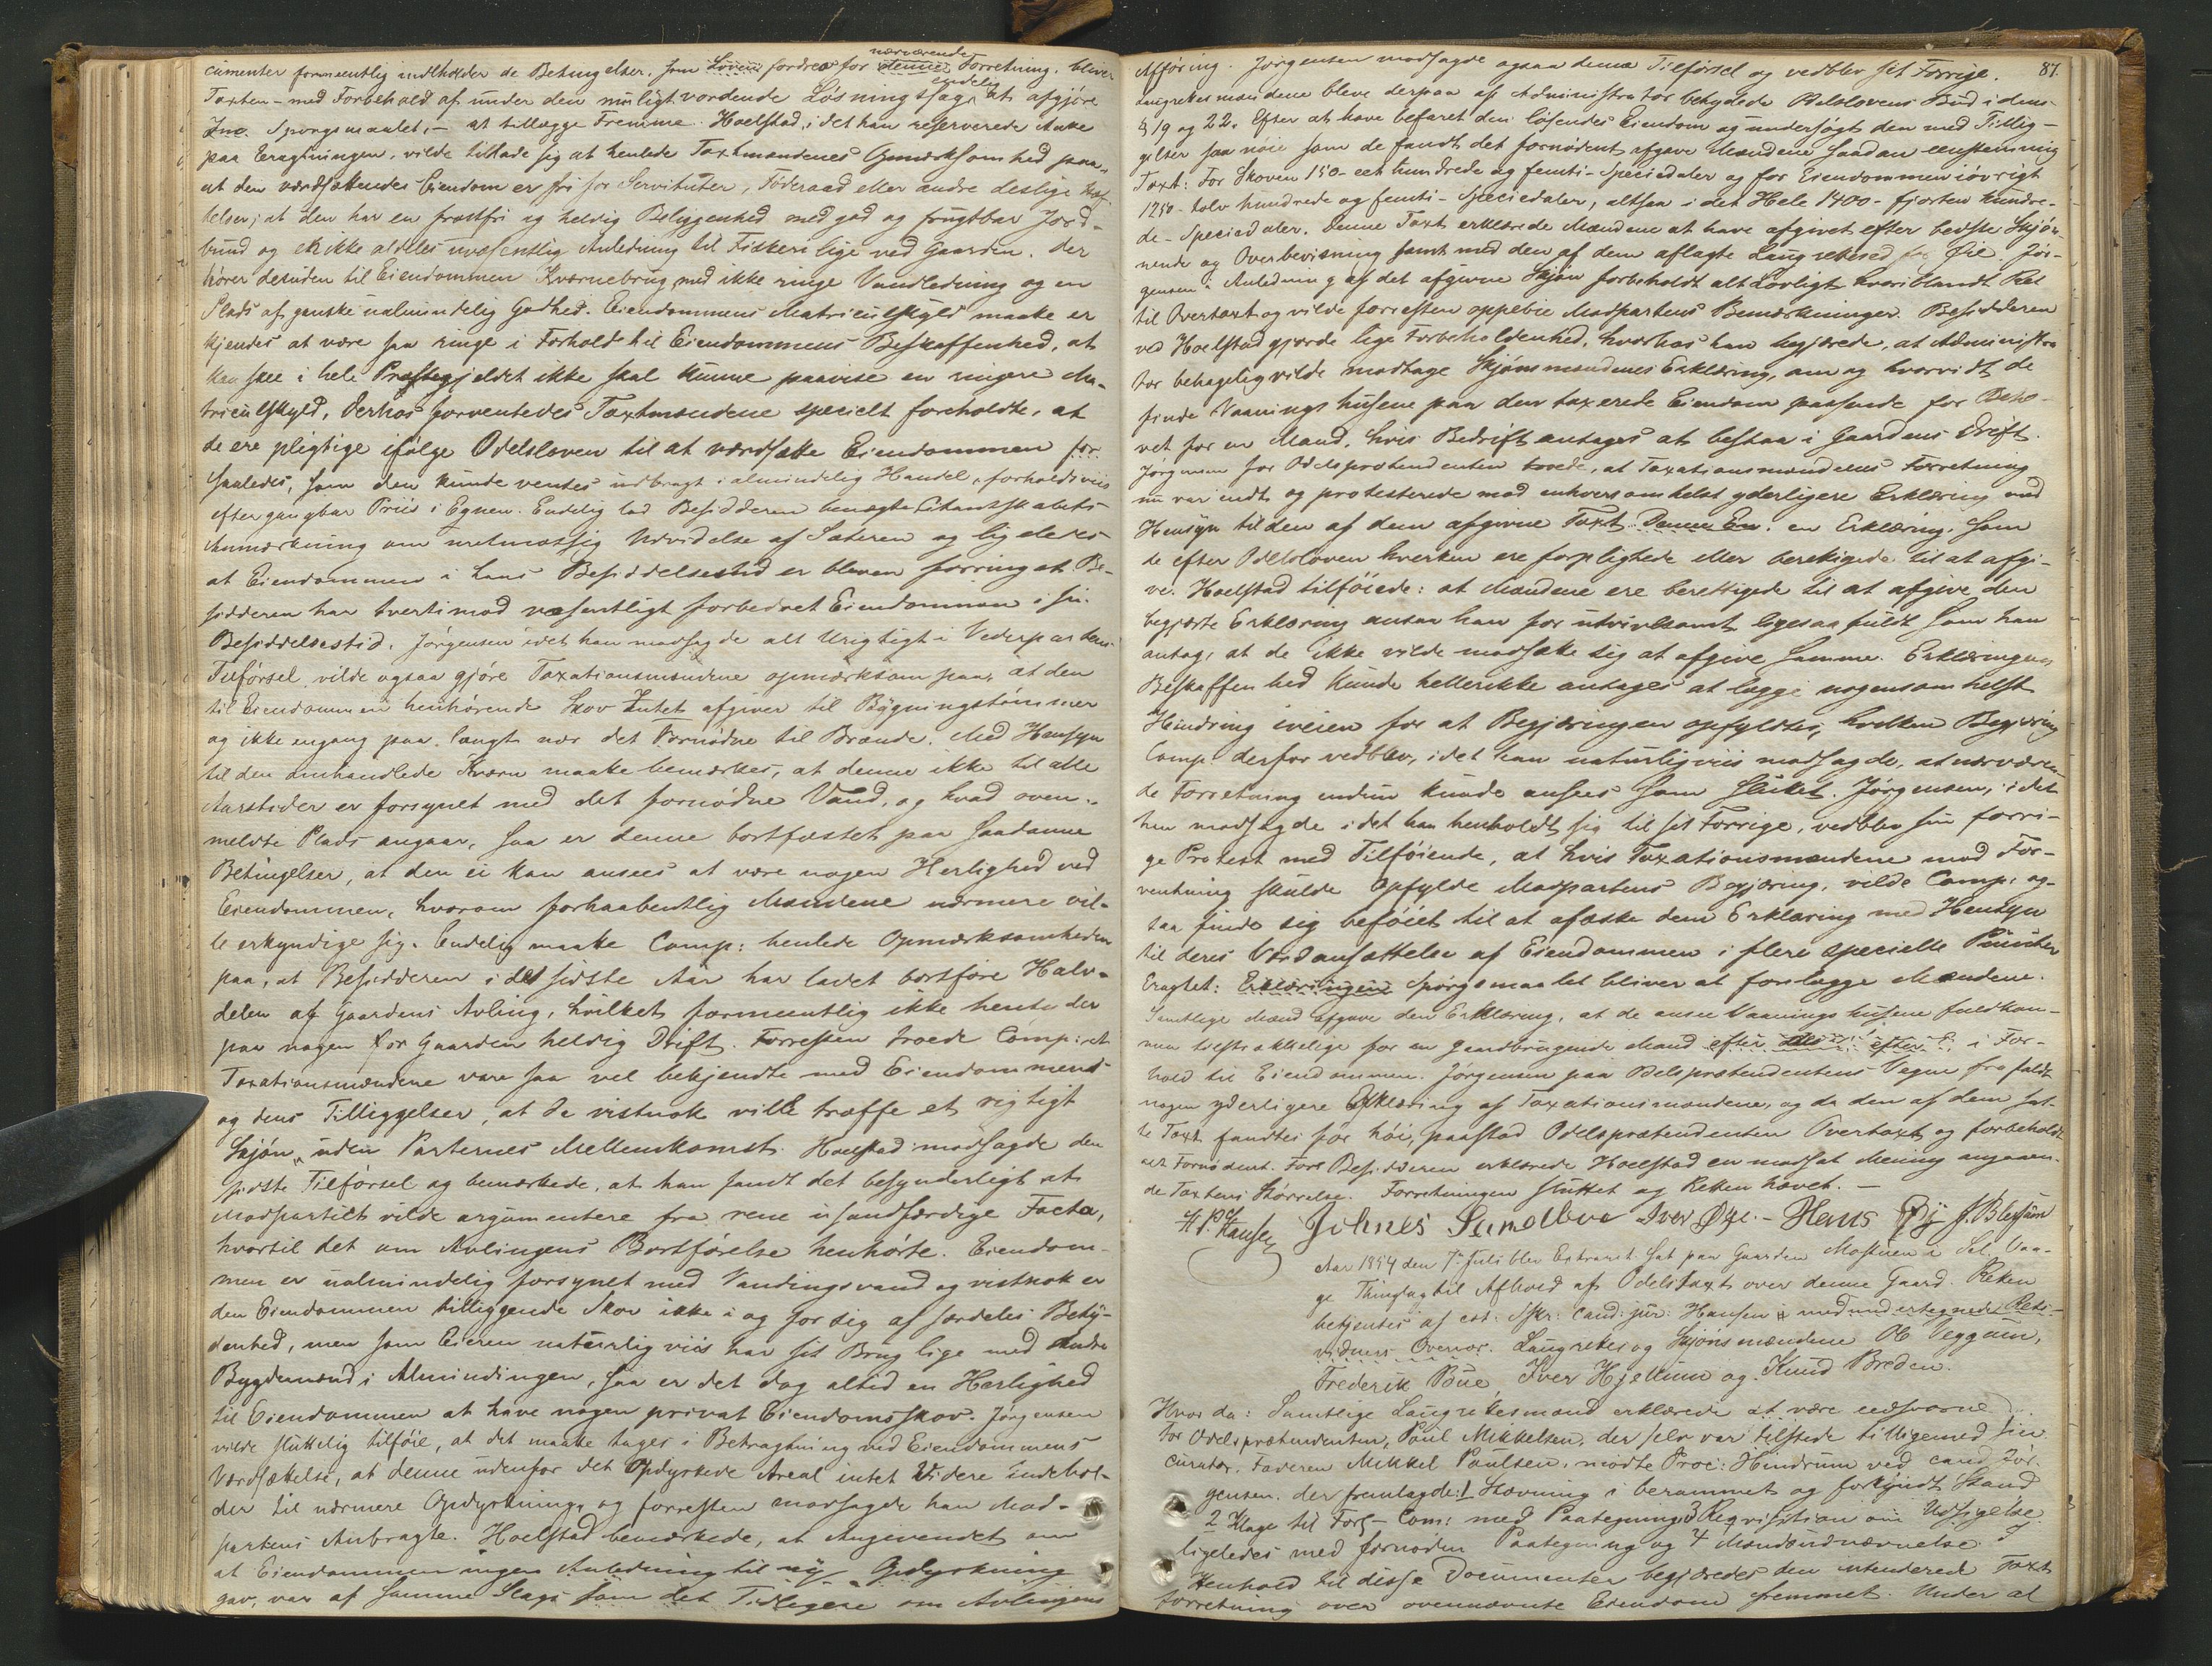 cumenter formeentlig indholder de Betingelser, som Loven fordrer for denne nærværende Forretning, bliver
Taxten – med Forbehold af under den muligt vordende Løsningssag endelig at afgjøre
Inc. Spørgsmaalet, – at tillægge Fremme. Hoelstad, idet han reserverede Anke
paa Eragtningen, vilde tillade sig at henlede Taxtmændenes Opmærksomhed paa,
at den værdsættendes Eiendom er fri for Servituter, Føderaad eller andre deslige Hef-
telser; at den har en frostfri og heldig Beliggenhed med god og frugtbar Jord-
bund og ei ikke aldeles uvæsentlig Anledning til Fiskeri lige ved Gaarden. Der
hører desuden til Eiendommen Kværnebrug med ikke ringe Vandledning og en
Plads af ganske ualmindelig Godhed. Eiendommens Matriculskyld maatte er
kjendes at være saa ringe i Forhold til Eiendommens Beskaffenhed, at
kan skee i hele Præstegjeldet ikke skal kunne paavise en ringere Ma-
triculskyld, Derhos forventedes Taxtmændene specielt foreholdte, at
de ere pligtige ifølge Odelsloven til at værdsætte Eiendommen for
saaledes, som den kunde ventes udbragt i almindelig Handel, forholdsviis
efter gangbar Priis i Egnen. Endelig lod Besidderen benægte Citantskabets
Anmærkning om uretmæssig Udvidelse af Sæteren og ligeledes
at Eiendommen i hans Besiddelsestid er bleven forringet. Be-
sidderen har tvertimod væsentligt forbedret Eiendommen i sin
Besiddelsestid. Jørgensen idet han modsagde alt Urigtigt i Vederpartens
Tilførsel vilde ogsaa gjøre Taxationsmændene opmærksom paa, at den
til Eiendommen henhørende Skov Intet afgiver til Bygningstømmer
og ikke engang paa langt nær det Fornødne til Brænde. Med Hensyn
til den omhandlede Kværn maatte bemærkes, at denne ikke til alle
Aarstider er forsynet med det fornødne Vand, og hvad oven-
meldte Plads angaar, saa er denne bortfæstet paa saadanne
Betingelser, at den ei kan ansees at være nogen Herlighed ved
Eiendommen, hvorom forhaabentlig Mændene nærmere vil-
le erkyndige sig. Endelig maatte Comp: henlede Opmærksomheden
paa, at Besidderen i det sidste Aar har ladet bortføre Halv-
delen af Gaardens Avling, hvilket formeentlig ikke henty der
paa nogen for Gaarden heldig Drift. Forresten troede Comp: at
Taxationsmændene vare saa vel bekjendte med Eiendommens
og dens Tilliggelser, at de vistnok ville træffe et rigtigt
Skjøn uden Parternes Mellemkomst. Hoelstad modsagde den
sidste Tilførsel og bemærkede, at han fandt det besynderligt at
Modpartiet vilde argumentere fra rene usandfærdige Facta,
hvortil det om Avlingens Bortførelse henhørte. Eiendom-
men er ualmindelig forsynet med Vandingsvand og vistnok er
den Eiendommen tilliggende Skov ikke i og for sig af særdeles Bety-
denhed, men som Eieren naturligviis har sit Brug lige med andre
Bygdemænd i Almindingen, saa er det dog altid en Herlighed
til Eiendommen at have nogen privat Eiendomsskov. Jørgensen
vilde sluttelig tilføie, at det maatte tages i Betragtning ved Eiendommens
Værdsættelse, at denne udenfor det Opdyrkede Areal intet Videre indehol-
der til nærmere Opdyrkning, og forresten modsagde han Mod-
partens Anbragte. Hoelstad bemærkede, at Angivendet om
at Eiendommen ingen Anledning til ny Opdyrkning
gav, var af samme Slags som det Tidligere om Avlingens
87.
Afføring. Jørgensen modsagde ogsaa denne Tilførsel og vedblev sit Forrige.
Laugrettesmændene bleve derpaa af Administrator betydede Odelslovens Bud i dens
§ 19 og 22. Efter at have befaret den løsendes Eiendom og undersøgt den med Tillig-
gelser saa nøie som de fandt det fornødent afgave Mændene saadan eenstemmig
Taxt: For Skoven 150 – eet hundrede og femti – Speciedaler og for Eiendommen iøvrigt
1250 – tolv hundrede og femti – Speciedaler, altsaa i det Hele 1400 – fjorten hundre-
de – Speciedaler. Denne Taxt erklærede Mændene at have afgivet efter bedste Skjøn-
nende og Overbevisning samt med den af dem aflagte Laugretteseed for Øie. Jør-
gensen i Anledning af det afgivne Skjøn forbeholdt alt Lovligt hvoriblandt Ret
til Overtaxt og vilde forresten oppebie Modpartens Bemærkninger. Besidderen
ved Hoelstad gjorde lige Forbeholdenhed, hvorhos han begjærede, at Administra
tor behagelig vilde modtage Skjønsmændenes Erklæring, om og hvorvidt de
finde Vaaningshusene paa den taxerede Eiendom passende for Beho-
vet for en Mand, hvis Bedrift antages at bestaa i Gaardens Drift.
Jørgensen for Odelsprætendenten troede, at Taxationsmændenes Forretning
nu var endt og protesterede mod enhversomhelst yderligere Erklæring med
Hensyn til den af dem afgivne Taxt. Denne Er. en Erklæring, som
de efter Odelsloven hverken ere forpligtede eller berettigede til at afgi-
ve. Hoelstad tilføiede: at Mændene ere berettigede til at afgive den
begjærte Erklæring ansaa han for utvivlsomt ligesaa fuldt som han
antog, at de ikke vilde modsætte sig at afgive samme. Erklæringens
Beskaffenhed kunde hellerikke antages at lægge nogensomhelst
Hindring iveien for at Begjæringen opfyldtes, hvilken Begjæring
Comp. derfor vedblev, idet han naturligviis modsagde, at nærværen-
de Forretning endnu kunde ansees som sluttet. Jørgensen, idet
han modsagde idet han henholdt sig til sit Forrige, vedblev sin forri-
ge Protest med Tilføiende, at hvis Taxationsmændene mod For-
ventning skulde opfylde Modpartens Begjæring, vilde Comp: og-
saa finde sig beføiet til at afæske dem Erklæring med Hensyn
til deres Værdsættelse af Eiendommen i flere specielle Puncter
Eragtet: Erklæringen Spørgsmaalet bliver at forelægge Mændene.
Samtlige Mænd afgave den Erklæring, at de ansee Vaaningshusene fuldkom-
men tilstrækkelige for en gaardbrugende Mand efter efter i For-
hold til Eiendommen. Jørgensen paa Odelsprætendentens Vegne frafaldt
nogen yderligere Erklæring af Taxationsmændene, og da den af dem sat-
te Taxt fandtes for høi, paastod Odelsprætendenten Overtaxt og forbeholdt
alt Fornødent. For Besidderen erklærede Hoelstad en modsat Mening angaaen-
de Taxtens Størrelse. Forretningen sluttet og Retten hævet. –
H. P. Hansen Johnes Sundbye Iver Øye. – Hans J. Blessum
Aar 1854 den 7de Juli blev Extraret sat paa Gaarden Mostuen i Sel. Vaa-
ge Thinglag til Afhold af Odelstaxt over denne Gaard. Retten
betjentes af cst: Skr: Cand: jur: Hansen med undertegnede Rets-
vidner Overvær. Laugrettes og Skjønsmændene Ole Veggum,
Frederik Bue, Iver Hjellum og Knud Breden.
Hvor da: Samtlige Laugrettesmænd erklærede at være eedsvorne
For Odelsprætendenten, Poul Mikkelsen, der selv var tilstede tilligemed sin
Curator, Faderen Mikkel Poulsen, mødte Proc: Hindrum ved cand. Jør-
gensen, der fremlagde: 1 Stævning i berammet og forkyndt Stand
2 Klage til Forl. – Com: med Paategning 3 Reqvisition om Udsigelse
ligeledes med fornøden Paategning og 4 Mændsudnævnelse.
I Henhold til disse Documenter begjæredes den intenderede Taxt
forretning over ovennævnte Eiendom fremmet. Under al